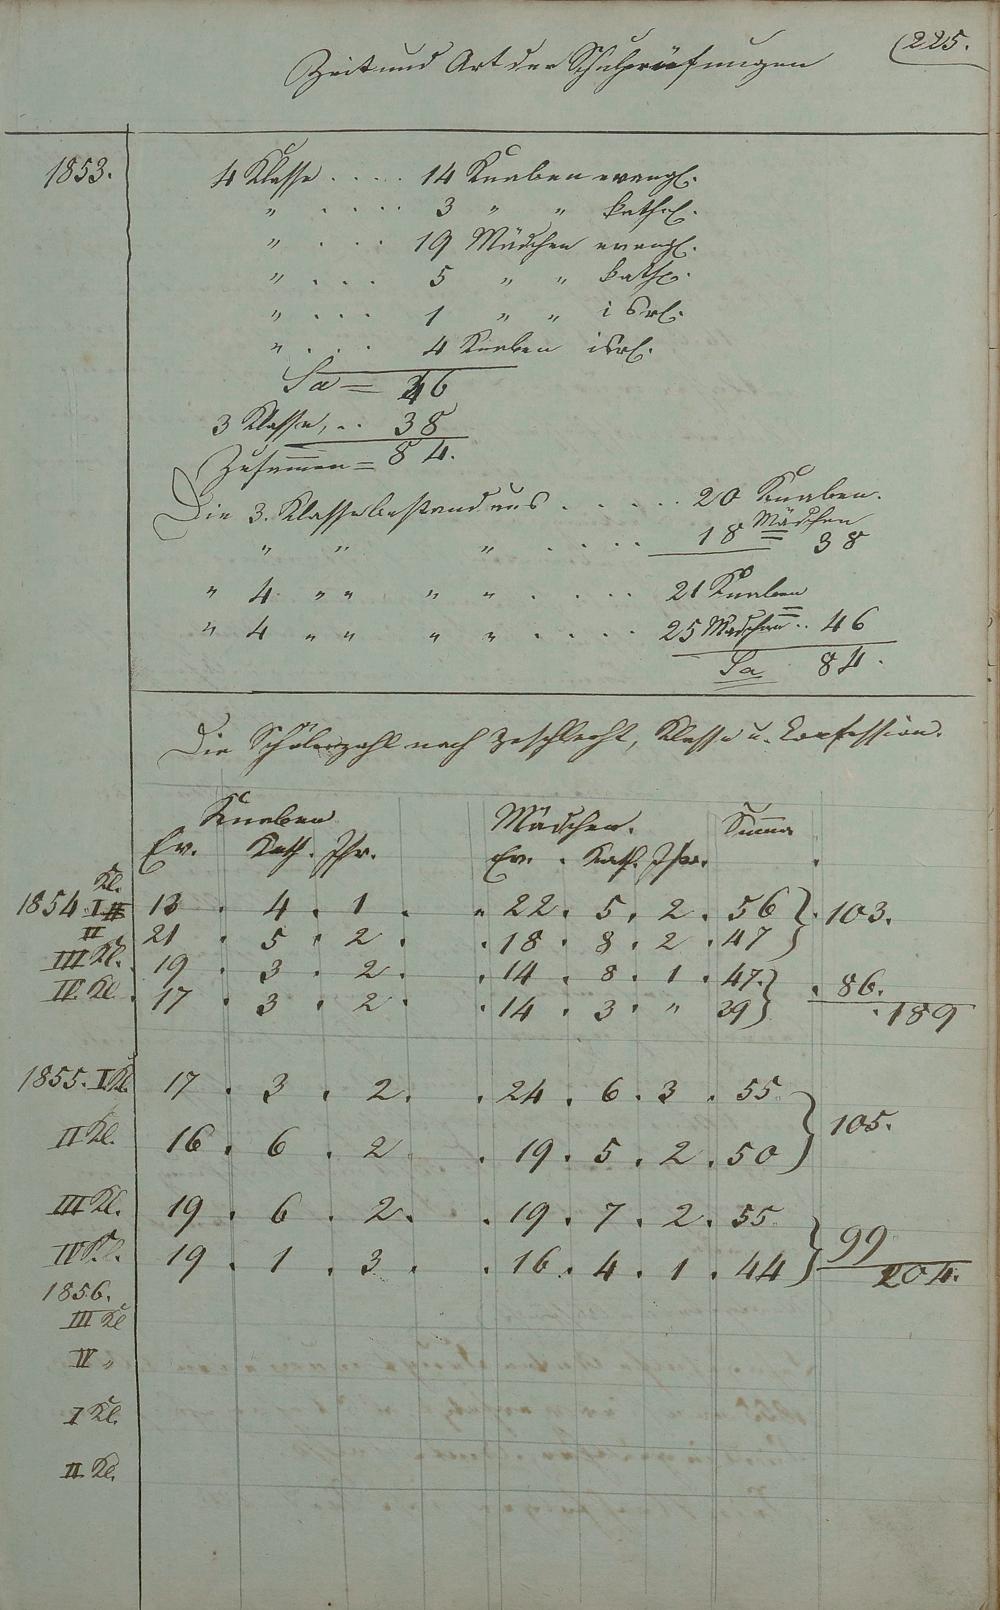 225.
Zeit und Art der Schulprüfungen
1853. 4 Klasse . . . . 14 Knaben evangl.
" . . . . 3 " " kathol.
" . . . 19 Mädchen evangl.
" . . . 5 " " kathl.
" . . . 1 " " isrl.
" . . . 4 Knaben isrl.
Sa = 46
3 Klasse, . . 38
Zusammen = 84.
Die 3. Klasse bestand aus . . . . . 20 Knaben.
" " " . . . . 18 Mädchen = 38
" 4 " " " " . . . . 21 Knaben
" 4 " " " " . . . . 25 Mädchen = . . 46
Sa 84.
Die Schülerzahl nach Geschlecht, Klasse u. Confession.
Knaben Mädchen. Summa
Ev. Kath. Isr. Ev. Kath. Isr.
Kl.
1854. I 13 . 4 . 1 . " 22 . 5 . 2 . 56 } . 103.
II 21 . 5 . 2 . . 18 . 8 . 2 . 47
III Kl. 19 . 3 . 2 . . 14 . 8 . 1 . 47. } . 86.
IV. Kl. 17 . 3 . 2 . . 14 . 3 . " 39 . 189
1855. I Kl. 17 . 3 . 2 . . 24 . 6 . 3 . 55 } 105.
II Kl. 16 . 6 . 2 . 19 . 5 . 2 . 50
III Kl. 19 . 6 . 2 . . 19 . 7 . 2 . 55 } 99
IV Kl. 19 . 1 . 3 . . 16 . 4 . 1 . 44 204.
1856.
III Kl
IV "
I Kl.
II Kl.